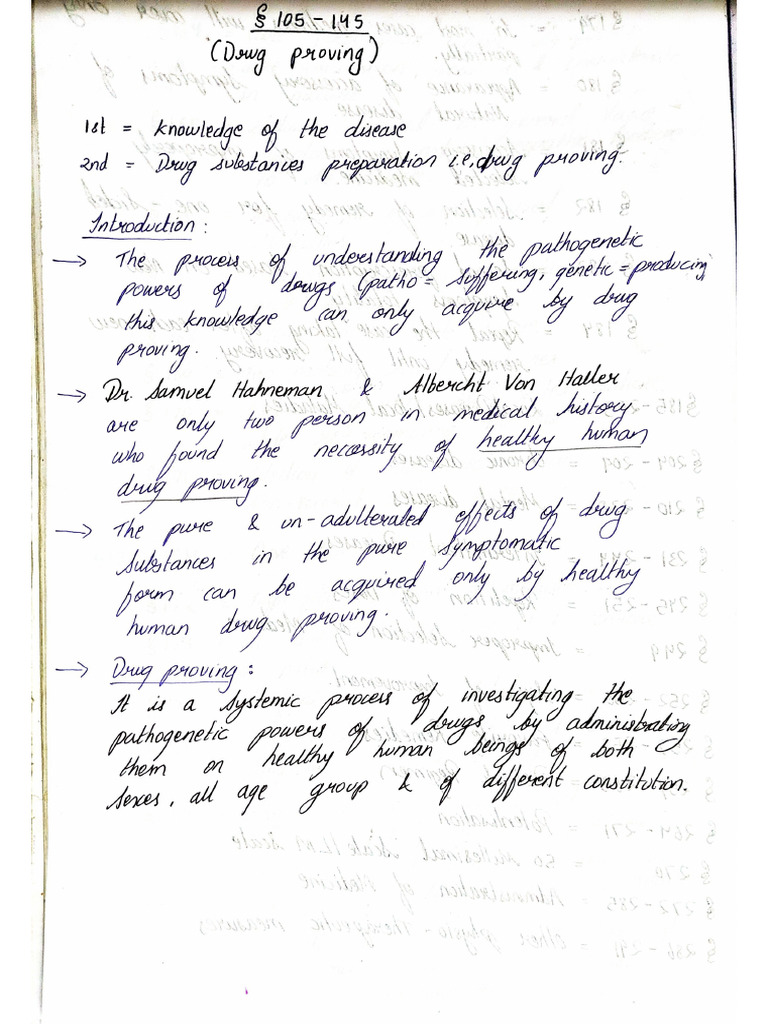 § 105-145
(Drug proving)
1st = knowledge of the disease
2nd = Drug substances preparation i.e, drug proving.
Introduction :
→ The process of understanding the pathogenetic
powers of drugs (patho = suffering, genetic = producing
this knowledge can only acquire by drug
proving.
→ Dr. Samuel Hahneman & Albercht Von Haller
are only two person in medical history
who found the necessity of healthy human
drug proving.
→ The pure & un-adulterated effects of drug
substances in the pure symptomatic
form can be acquired only by healthy
human drug proving.
→ Drug proving :
It is a systemic process of investigating the
pathogenetic powers of drugs by administrating
them on healthy human beings of both
sexes, all age group & of different constitution.